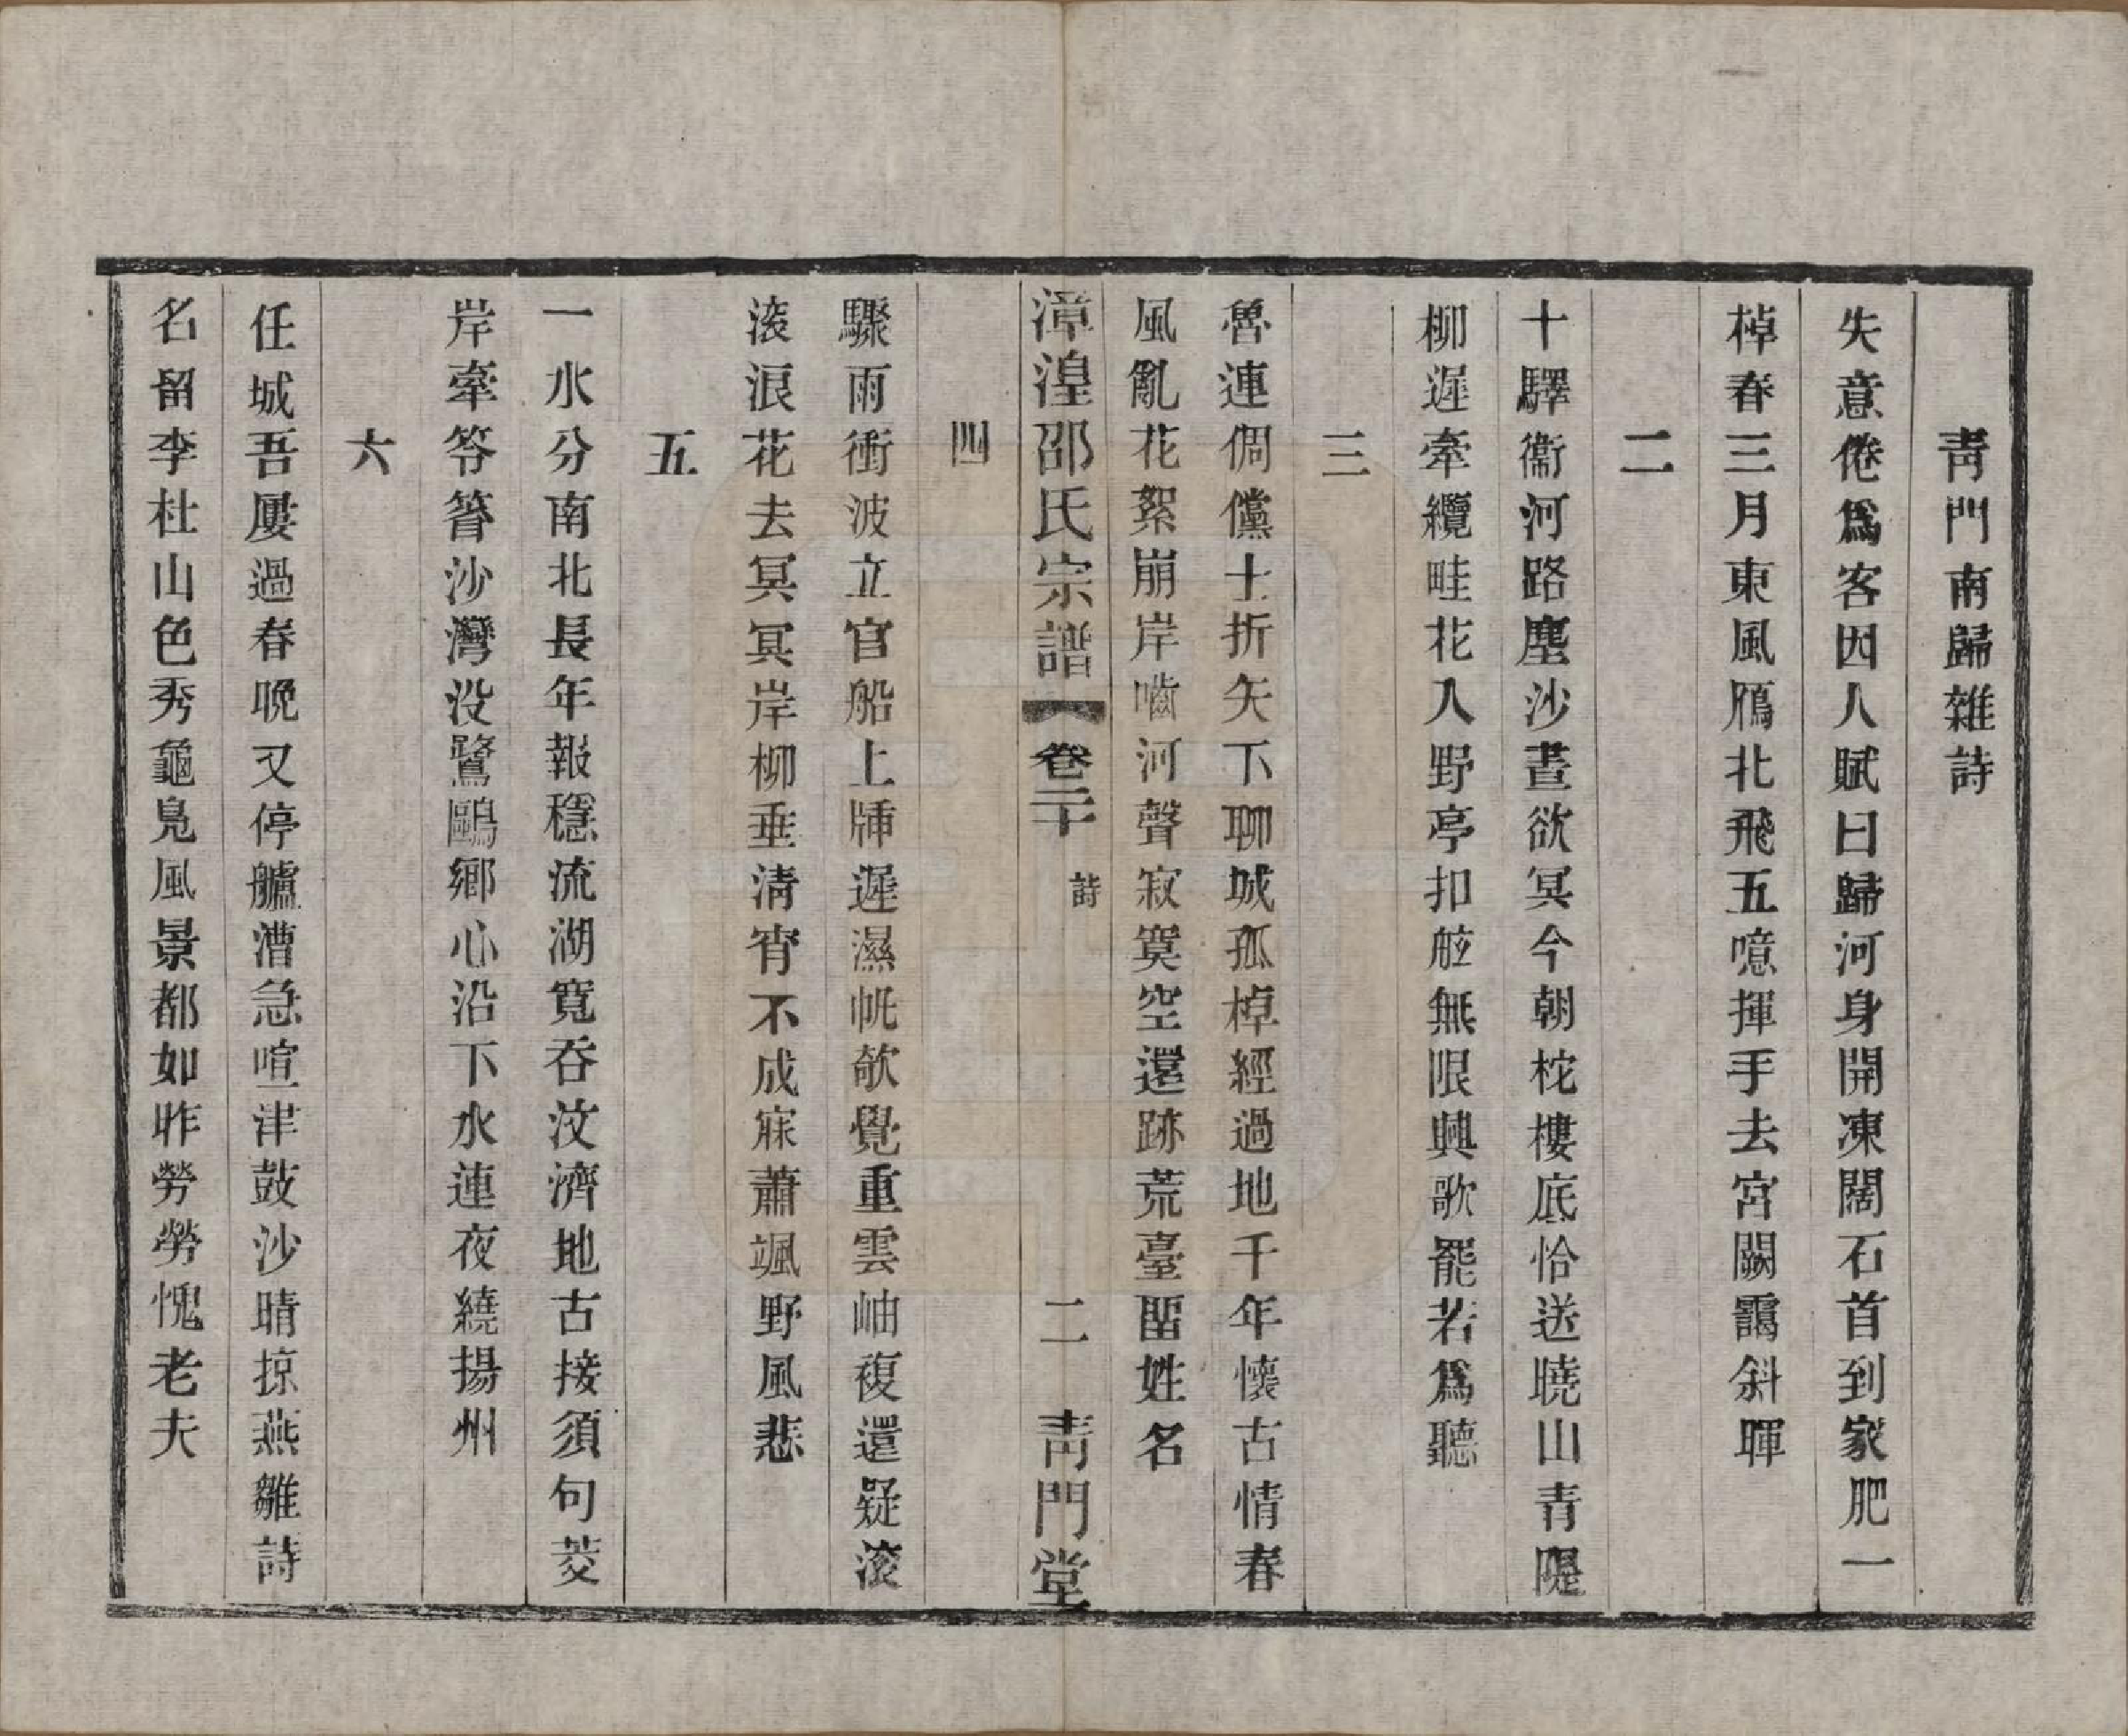 靑門南歸雜詩
失意倦爲客因人賦曰歸河身開凍闊石首到家肥一
棹春三月東風鴈北飛五噫揮手去宮闕靄斜暉
二
十驛衞河路塵沙晝欲冥今朝柁樓底恰送曉山青隄
柳遲牽纜畦花入野亭扣舷無限興歌罷若爲聽
三
魯連倜儻士折矢下聊城孤棹經過地千年懷古情春
風亂花絮崩岸嚙河聲寂寞空還跡荒臺畱姓名
漳湟邵氏宗譜
卷二十
詩
二
靑門堂
四
驟雨衝波立官船上牐遲濕帆欹覺重雲岫複還疑滾
滾浪花去冥冥岸柳垂淸宵不成寐蕭颯野風悲
五
一水分南北長年報穩流湖寬吞汶濟地古接須句茭
岸牽笭箵沙灣没鷺鷗鄉心沿下水連夜繞揚州
六
任城吾屢過春晩又停艫漕急喧津鼓沙晴掠燕雛詩
名留李杜山色秀龜鳧風景都如昨勞勞愧老夫